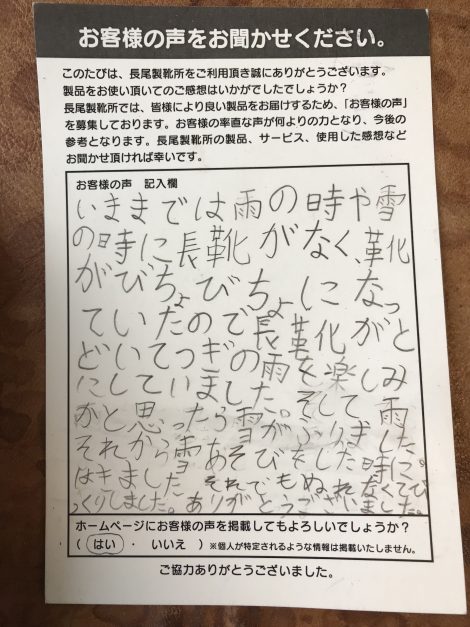 お客様の声をお聞かせください。
このたびは、長尾製靴所をご利用頂き誠にありがとうございます。
製品をお使い頂いてのご感想はいかがでしたでしょうか？
長尾製靴所では、皆様により良い製品をお届けするため、「お客様の声」
を募集しております。お客様の率直な声が何よりの力となり、今後の
参考となります。長尾製靴所の製品、サービス、使用した感想など
お聞かせ頂ければ幸いです。
お客様の声　記入欄
いままでは雨の時や雪
の時に長靴がなく、靴
がびちょびちょになっ
ていたので長靴がと
どいてつぎの雨を楽しみ
にしていました。そして雨
がと思ったら雪がふりました。
それから雪あそびをした時に
はきました。それでもぬれなくてび
っくりしました。ありがとうございました。
ホームページにお客様の声を掲載してもよろしいでしょうか？
（ はい ・ いいえ ）※個人が特定されるような情報は掲載いたしません。
ご協力ありがとうございました。